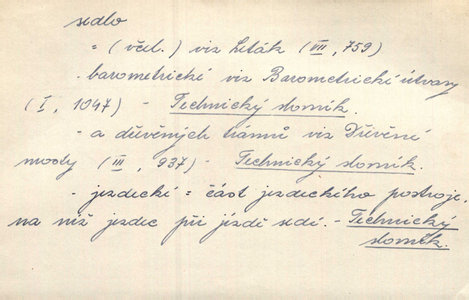 sedlo
= (včel.) viz Leták (VII, 759)
- barometrické viz Barometrické útvary
(I, 1047) - Technický slovník.
- a dřevěných trámů viz Dřevěné
(III, 937) - Technický slovník.
- jezdecké = část jezdeckého postroje,
na níž jezdec při jízdě sedí. - Technický
slovník.